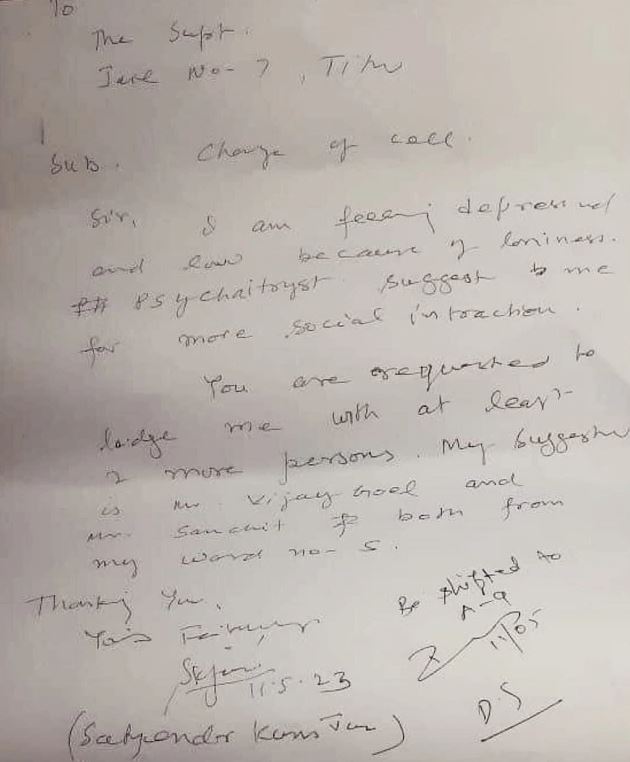 To
The Supt.
Jail No- 7, Tihar
Sub. Change of cell.
Sir, I am feeling depressed
and low because of lonliness.
Psychaitryst suggest to me
for more social intraction.
You are requested to
lodge me with at least
2 more persons. My Suggestion
is Mr. Vijay Goel and
Mr. Sanchit both from
my ward no- 5.
Thanking You,
Yours
11.5.23
(Satyender Kumar Jain)
Be shifted to
A-9
11/05
D.S